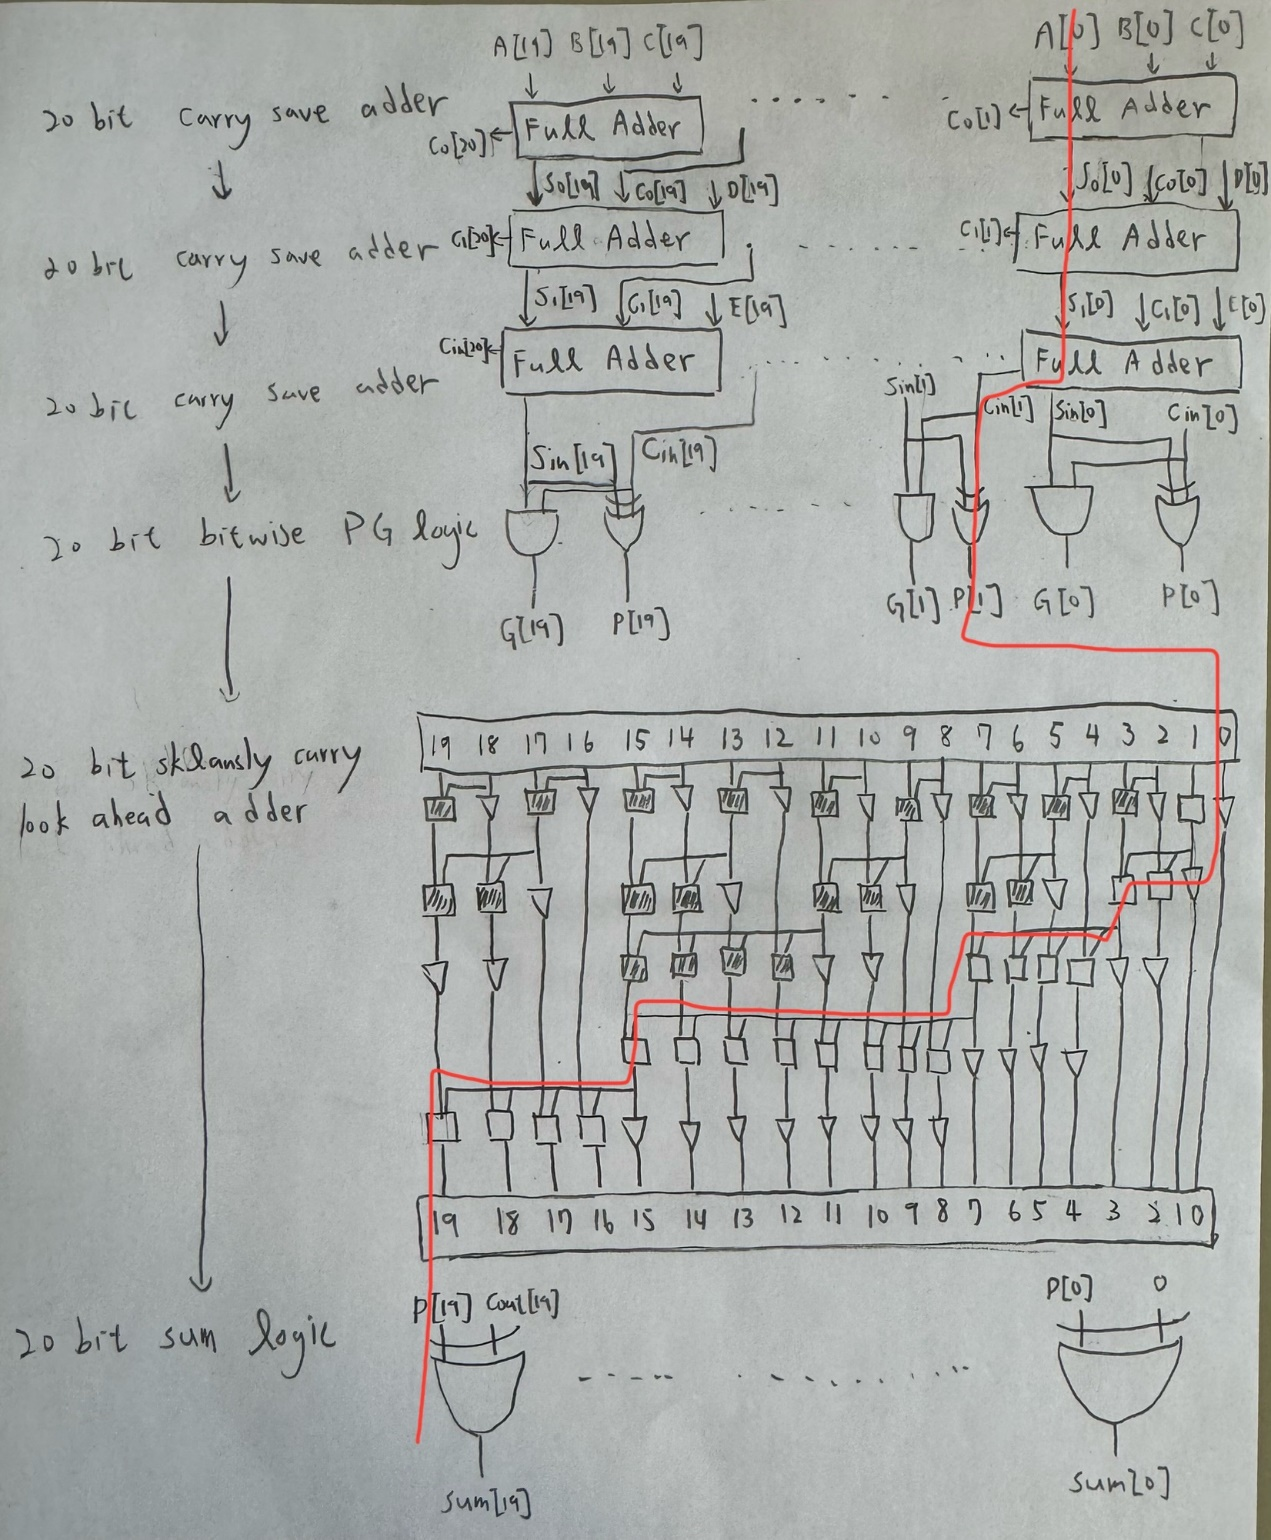 A[19] B[19] C[19]
A[0] B[0] C[0]
20 bit carry save adder
Co[20] Full Adder
Co[1] Full Adder
So[19] Co[19] D[19]
So[0] Co[0] D[0]
20 bit carry save adder
C1[20] Full Adder
C1[1] Full Adder
S1[19] C1[19] E[19]
S1[0] C1[0] E[0]
20 bit carry save adder
Cin[20] Full Adder
Full Adder
Sin[1] Cin[1] Sin[0] Cin[0]
Sin[19] Cin[19]
20 bit bitwise PG logic
G[19] P[19]
G[1] P[1] G[0] P[0]
20 bit sklansly carry
look ahead adder
19 18 17 16 15 14 13 12 11 10 9 8 7 6 5 4 3 2 1 0
19 18 17 16 15 14 13 12 11 10 9 8 7 6 5 4 3 2 1 0
20 bit sum logic
P[19] Cout[19]
P[0] 0
Sum[19]
Sum[0]